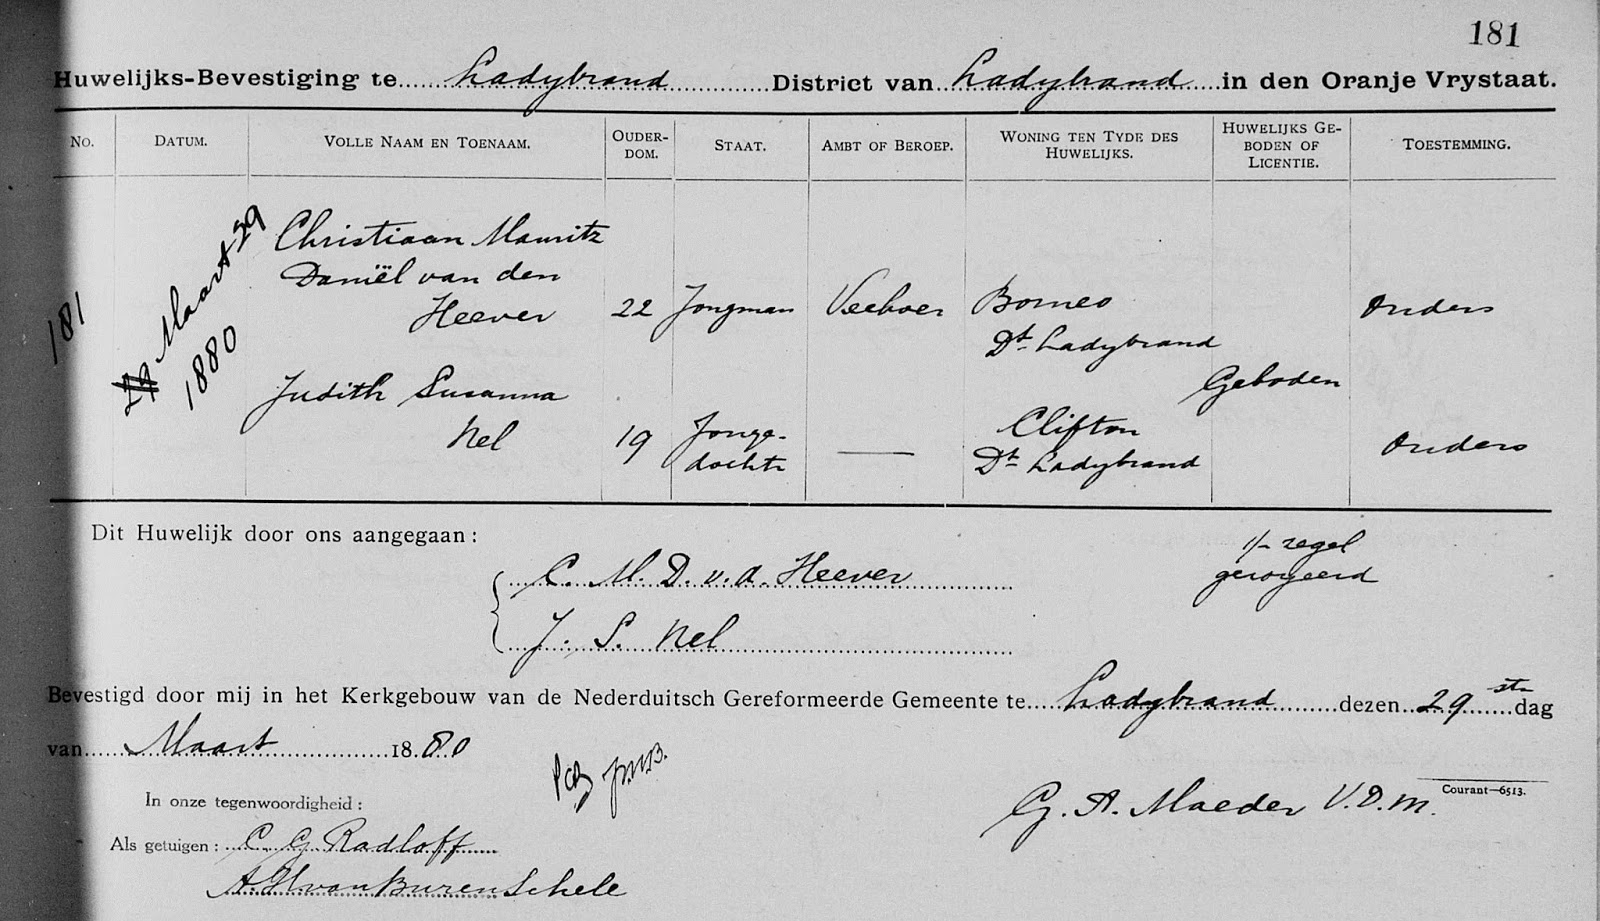 181
Huwelijks-Bevestiging te Ladybrand District van Ladybrand in den Oranje Vrystaat.
No. Datum. Volle Naam en Toenaam. Ouder-dom. Staat. Ambt of Beroep. Woning ten Tyde des Huwelijks. Huwelijks Ge-boden of Licentie. Toestemming.
181
29 Maart 29
1880
Christiaan Mauritz
Daniël van den
Heever 22 Jongman Veeboer Borneo Ouders
Dt. Ladybrand
Geboden
Judith Susanna
Nel 19 Jonge-
dochter Clifton
Dt. Ladybrand Ouders
Dit Huwelijk door ons aangegaan:
C. M. D. v. d. Heever
J. S. Nel
1/- zegel
geroyeerd
Bevestigd door mij in het Kerkgebouw van de Nederduitsch Gereformeerde Gemeente te Ladybrand dezen 29 ste dag
van Maart 1880
In onze tegenwoordigheid:
Als getuigen: C. G. Radloff
A. H. van Buren Schele
G. A. Maeder V.D.M.
Courant—6513.